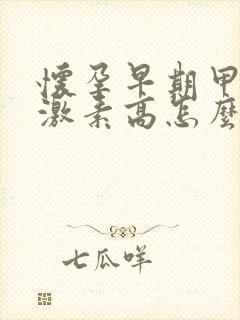 懷孕早期甲
激素高怎麼
七瓜咩